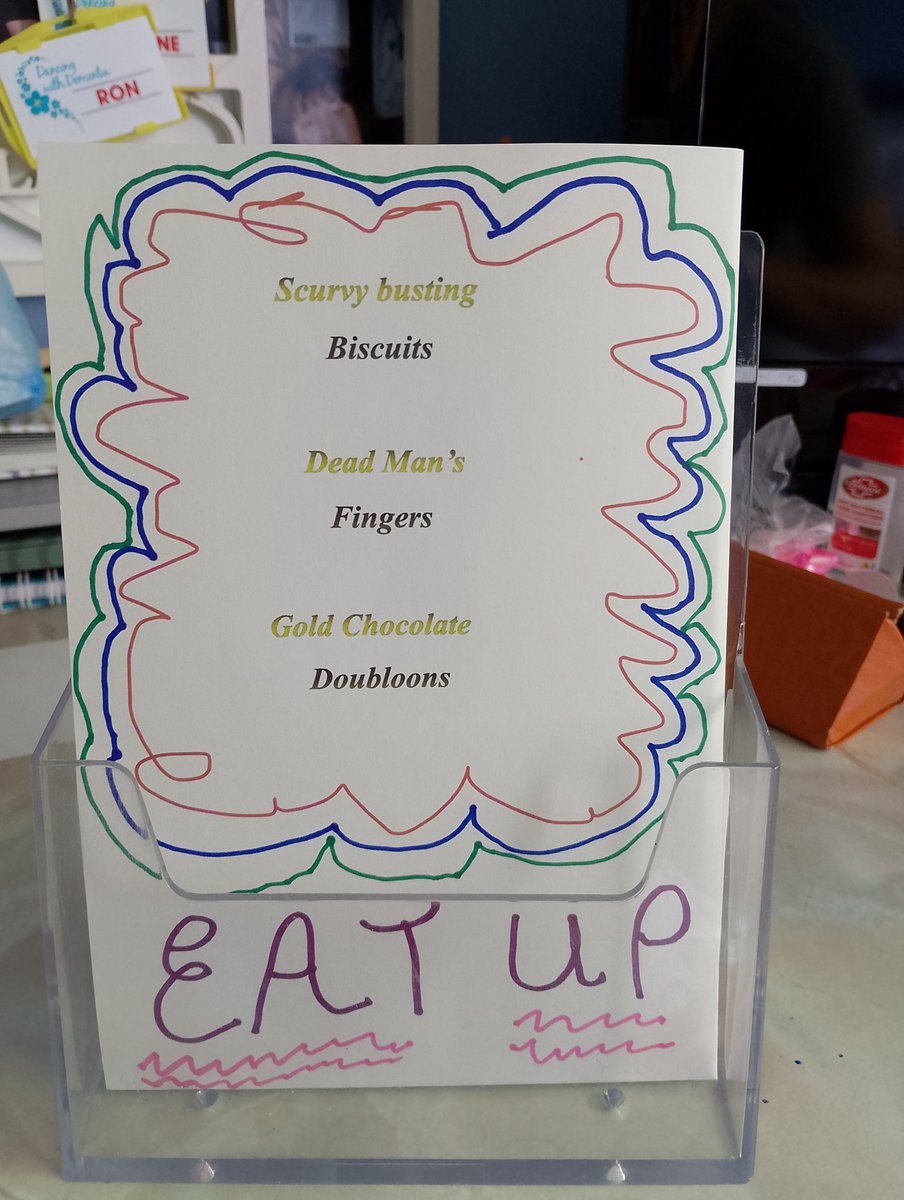 NE
Dancing
with Dementia
RON
Scurvy busting
Biscuits
Dead Man's
Fingers
Gold Chocolate
Doubloons
EAT UP